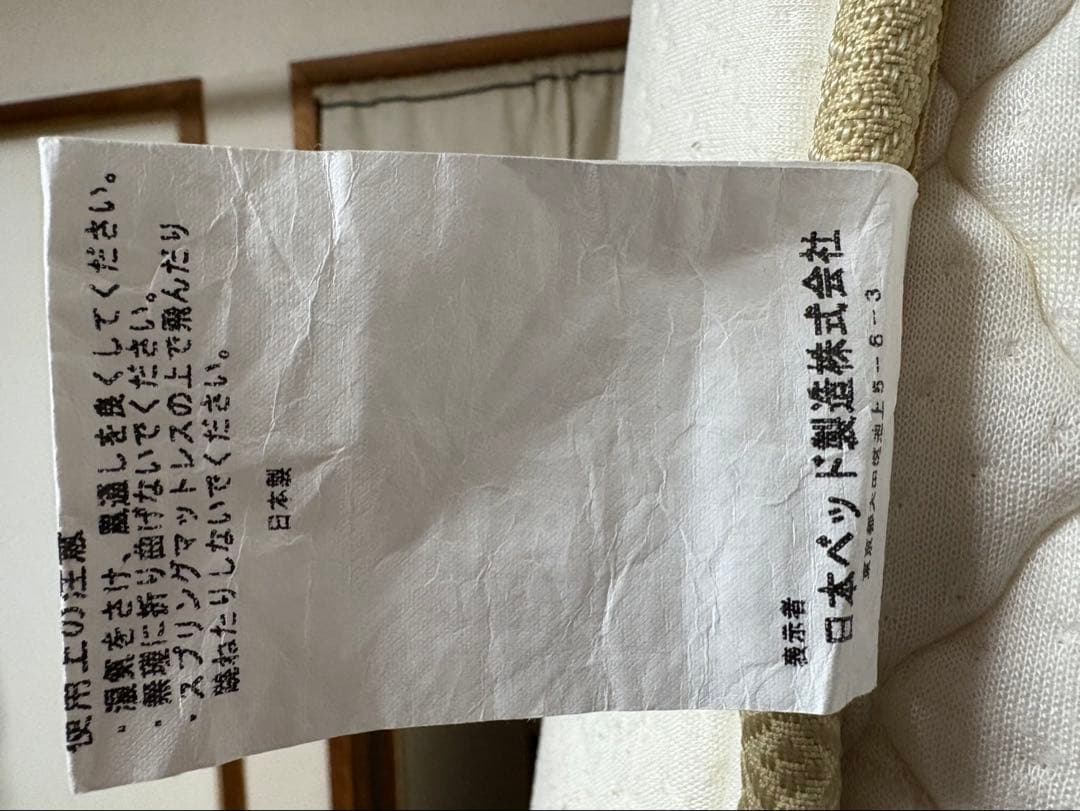 使用上の注意
・湿気をさけ、風通しを良くしてください。
・無理に折り曲げないでください。
・スプリングマットレスの上で飛んだり
跳ねたりしないでください。
日本製
表示者
日本ベッド製造株式会社
東京都大田区池上5-6-3